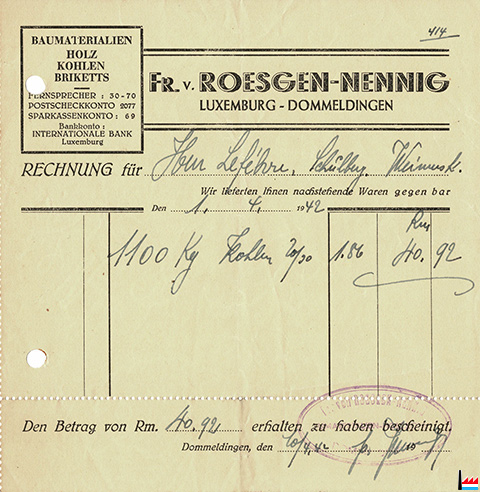 414
BAUMATERIALIEN
HOLZ
KOHLEN
BRIKETTS
FERNSPRECHER : 30-70
POSTSCHECKKONTO 2077
SPARKASSENKONTO : 69
Bankkonto :
INTERNATIONALE BANK
Luxemburg
FR. v. ROESGEN-NENNIG
LUXEMBURG - DOMMELDINGEN
RECHNUNG für Herr Lefebvre,
Wir lieferten Ihnen nachstehende Waren gegen bar
Den 1. 4. 1942
Rm
1100 Kg Kohlen 20/30 1.86 40.92
Den Betrag von Rm. 40.92 erhalten zu haben bescheinigt,
Dommeldingen, den 10/4.42